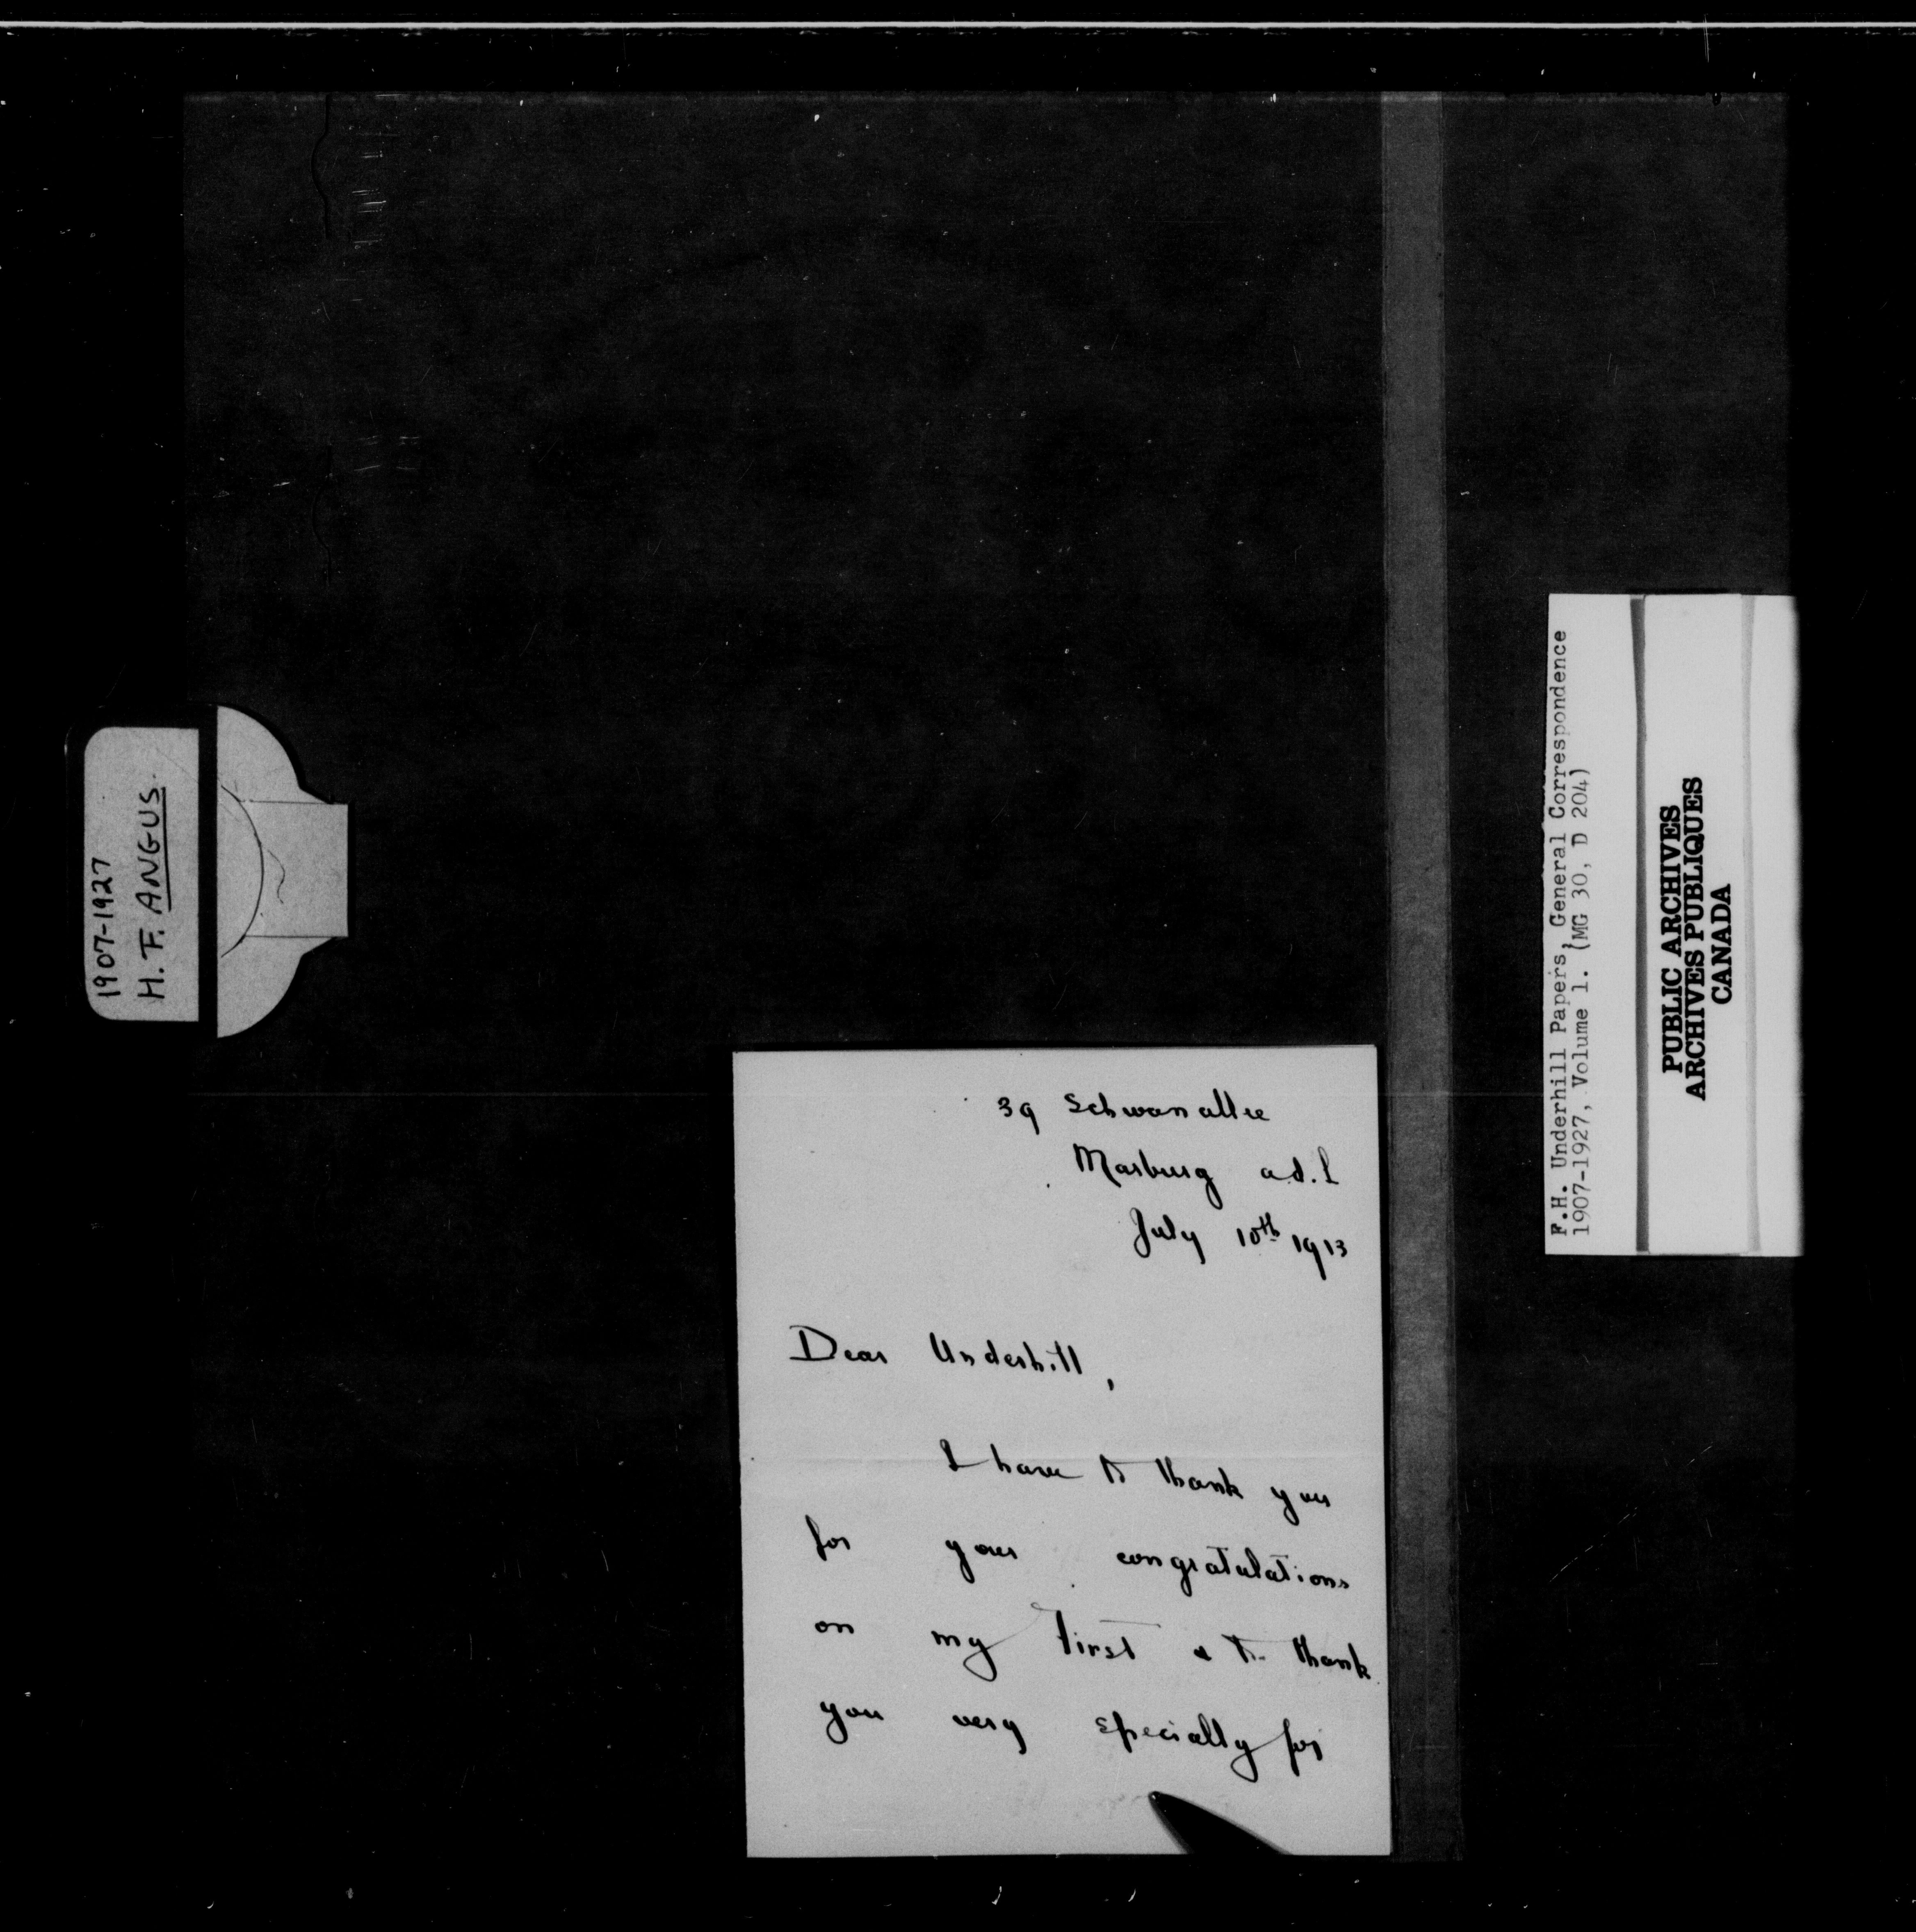 1907-1927
H. F. ANGUS.
39 Schwanallee
Marburg a.d.L
July 10th 1913
Dear Underhill,
I have to thank you
for your congratulations
on my First & to thank
you very specially for
F.H. Underhill Papers, General Correspondence
1907-1927, Volume 1. (MG 30, D 204)
PUBLIC ARCHIVES
ARCHIVES PUBLIQUES
CANADA